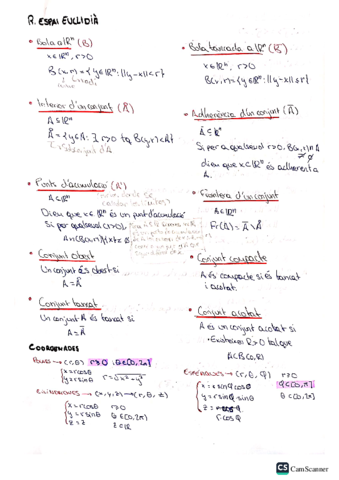 R. ESPAI EUCLIDIÀ
• Bola a ℝⁿ (B)
x∈ℝⁿ, r>0
B(x,r)={y∈ℝⁿ: ||y-x||≤r}
• Bola tancada a ℝⁿ (B̄)
x∈ℝⁿ, r>0
B(x,r)={y∈ℝⁿ: ||y-x||≤r}
• Interior d'un conjunt (Å)
A⊆ℝⁿ
Å={y∈A: ∃ r>0 tq B(y,r)⊂A}
• Adherència d'un conjunt (Ā)
A⊆ℝⁿ
Si per a qualsevol r>0, B(x,r)∩A≠∅
dieu que x∈ℝⁿ és adherent a
A.
• Punts d'acumulació (A')
A⊆ℝⁿ
Dieu que x∈ℝⁿ és un punt d'acumulació
Si per qualsevol r>0,
A∩(B(x,r)\{x})≠∅
• Frontera d'un conjunt
A⊆ℝⁿ
Fr(A)=Ā\Å
• Conjunt obert
Un conjunt és obert si
A=Å
• Conjunt compacte
A és compacte si és tancat
i acotat.
• Conjunt tancat
Un conjunt A és tancat si
A=Ā
• Conjunt acotat
A és un conjunt acotat si
• Existeix R>0 tal que
A⊂B(0,R)
COORDENADES
POLARS → (r,θ) r≥0 θ∈[0,2π)
x=rcosθ
y=rsinθ
r=√x²+y²
CILÍNDRIQUES → (x,y,z)→(r,θ,z)
x=rcosθ r>0
y=rsinθ θ∈[0,2π)
z=z z∈ℝ
ESFÈRIQUES → (r,θ,φ) r≥0
x=rsinφcosθ φ∈[0,π]
y=rsinφsinθ θ∈[0,2π)
z=rcosφ
rcosφ
CS CamScanner